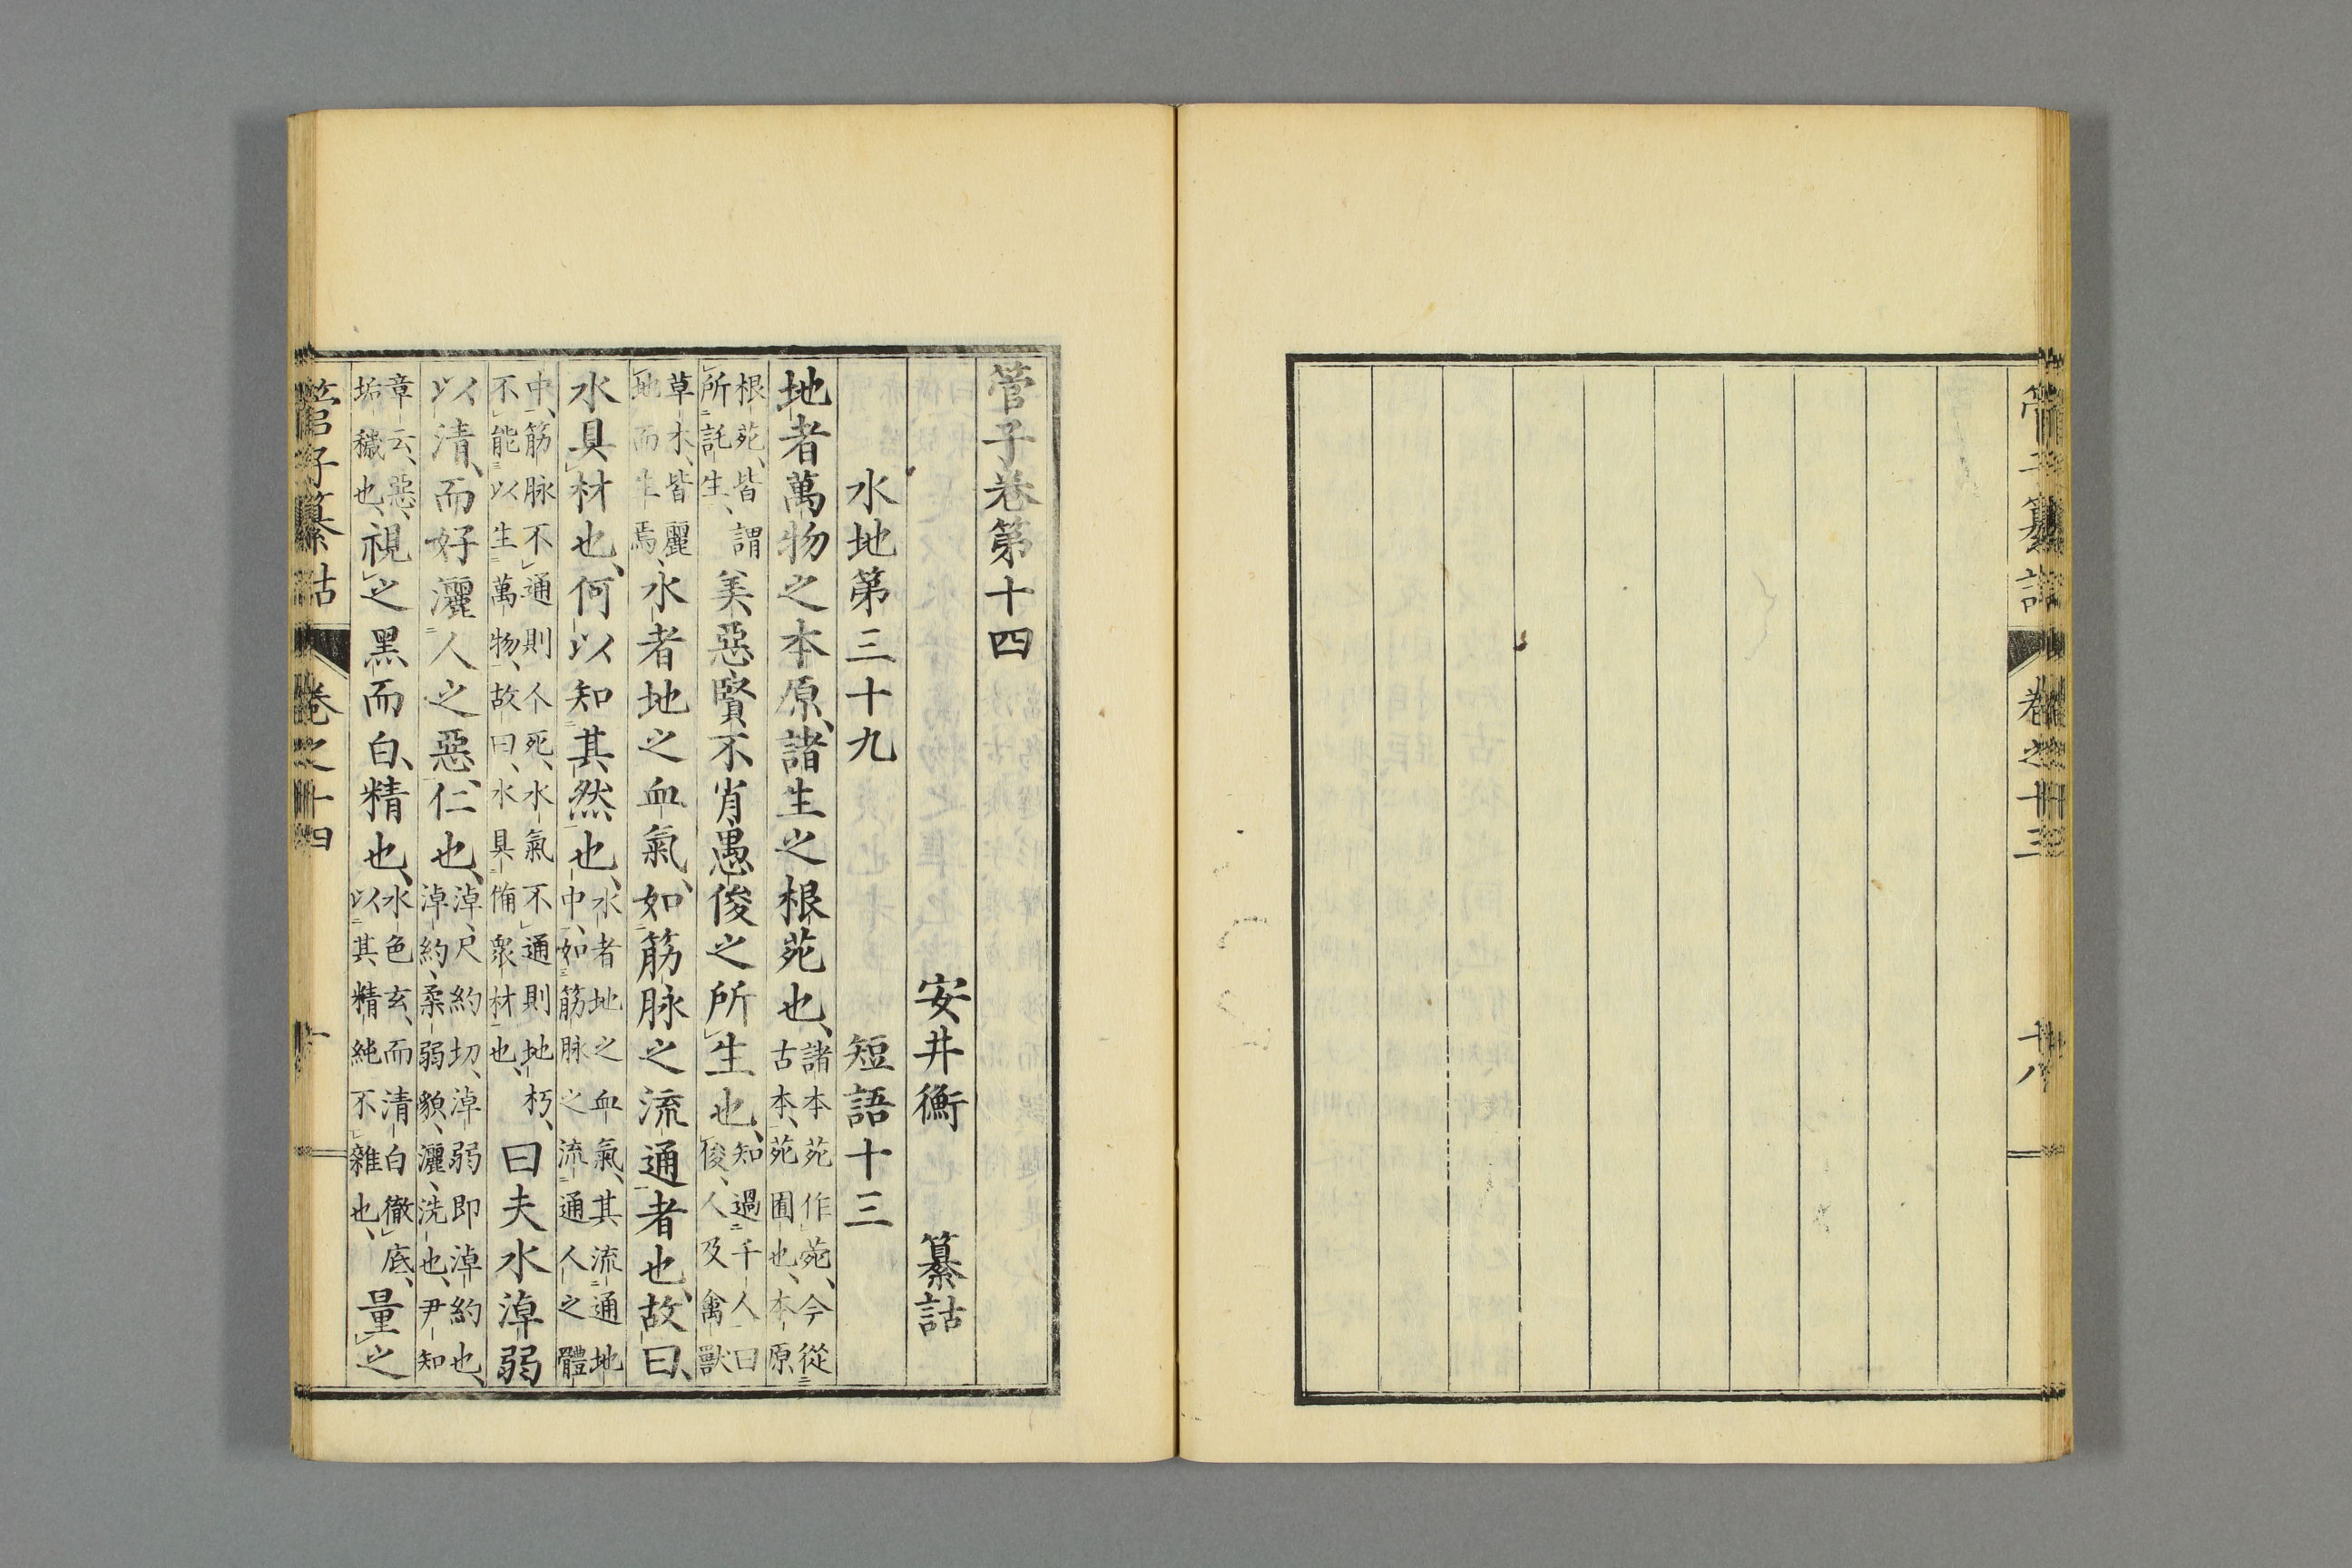 管子纂詁 卷之十三 十八
管子卷第十四
安井衡 纂詁
水地第三十九 短語十三
地者萬物之本原、諸生之根菀也、諸本菀作苑、今從古本、菀囿也、本原
根菀、皆謂所託生、美惡賢不肖愚俊之所生也、知過千人曰俊、人及禽獸
草木、皆麗地而生焉、水者地之血氣、如筋脉之流通者也、故曰、
水具材也、何以知其然也、水者地之血氣、其流通地中、如筋脉之流通人之體
中、筋脉不通則人死、水氣不通則地朽、不能以生萬物、故曰、水具備衆材也、曰夫水淖弱
以清、而好灑人之惡、仁也、淖、尺約切、淖弱即淖約也、淖約、柔弱貌、灑、洗也、尹知
章云、惡、垢穢也、視之黑而白、精也、水色玄、而清白徹底、以其精純不雜也、量之
管子纂詁 卷之十四 一